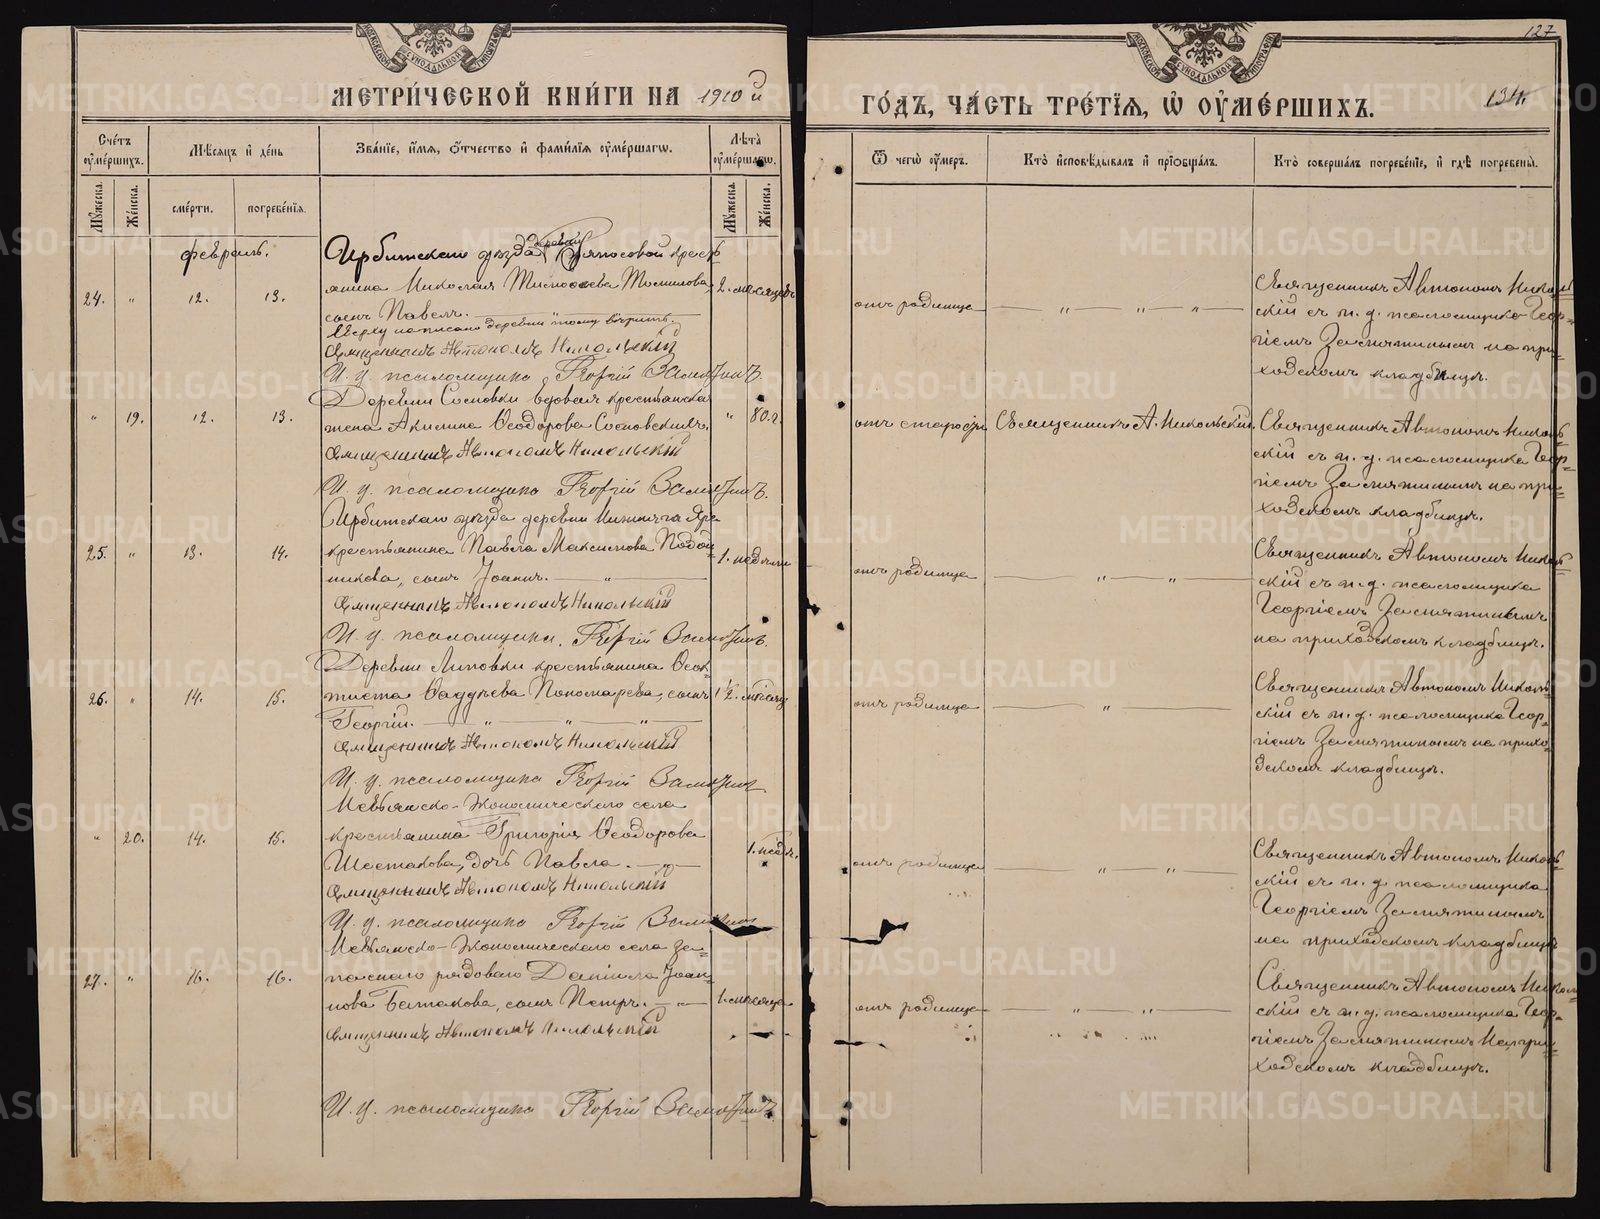 127
134.
МЕТРИ́ЧЕСКОЙ КНИ́ГИ НА 1910 й
ГО́ДЪ, ЧА́СТЬ ТРЕ́ТЇЯ, Ѡ҆ ОУ҆МЕ́РШИХЪ.
Сче́тъ оу҆ме́ршихъ.
Мѣ́сяцъ и҆ де́нь
Зва́нїе, и҆́мя, ѻ҆́тчество и҆ фами́лїя оу҆ме́ршагѡ.
Лѣ́та оу҆ме́ршагѡ.
Ѿ чегѡ̀ оу҆́меръ.
Кто̀ и҆сповѣ́дывалъ и҆ прїѡбща́лъ.
Кто̀ соверша́лъ погребе́нїе, и҆ гдѣ̀ погребены̀.
Мꙋ́жеска.
Же́нска.
сме́рти.
погребе́нїя.
Мꙋ́жеска.
Же́нска.
Февраль.
Ирбитскаго уѣзда деревни
крестьянина Николая Тимоѳеева Томилова
сынъ Павелъ.
Вверху написано деревни тому вѣрить.
Священникъ Автономъ Никольскій
И. д. псаломщика Георгій Замятинъ.
24. " 12. 13.
2. мѣсяцевъ
отъ родимца
Священникъ Автономъ Николь=
скій съ и. д. псаломщика Геор=
гіемъ Замятинымъ на при=
ходскомъ кладбищѣ.
" 19. 12. 13.
Деревни Сосновки вдовая крестьянская
жена Акилина Ѳеодорова Сосновскихъ.
Священникъ Автономъ Никольскій
И. д. псаломщика Георгій Замятинъ.
" 80. г.
отъ старости
Священникъ А. Никольскій.
Священникъ Автономъ Николь=
скій съ и. д. псаломщика Геор=
гіемъ Замятинымъ на при=
ходскомъ кладбищѣ.
25. " 13. 14.
Ирбитскаго уѣзда деревни
крестьянина Павла Максимова
сынъ Іоаннъ.
Священникъ Автономъ Никольскій
И. д. псаломщика Георгій Замятинъ.
1. недѣли
отъ родимца
Священникъ Автономъ Николь=
скій съ и. д. псаломщика
Георгіемъ Замятинымъ
на приходскомъ кладбищѣ.
26. " 14. 15.
Деревни Липовки крестьянина Ѳеок=
тиста Ѳаддѣева Пономарева, сынъ
Георгій.
Священникъ Автономъ Никольскій
И. д. псаломщика Георгій Замятинъ
1 1/2. мѣсяц
отъ родимца
Священникъ Автономъ Николь=
скій съ и. д. псаломщика Геор=
гіемъ Замятинымъ на прихо=
дскомъ кладбищѣ.
" 20. 14. 15.
Невьянско-Экономическаго села
крестьянина Григорія Ѳеодорова
Шестакова, дочь Павла.
Священникъ Автономъ Никольскій
И. д. псаломщика Георгій Замятинъ
1. недѣл.
отъ родимца
Священникъ Автономъ Николь=
скій съ и. д. псаломщика
Георгіемъ Замятинымъ
на приходскомъ кладбищѣ
27. " 16. 16.
Невьянско-Экономическаго села за=
паснаго рядоваго Даніила Іоан=
нова Батакова, сынъ Петръ.
Священникъ Автономъ Никольскій
И. д. псаломщика Георгій Замятинъ.
1. мѣсяца
отъ родимца
Священникъ Автономъ Николь=
скій съ и. д. псаломщика Геор=
гіемъ Замятинымъ на при=
ходскомъ кладбищѣ.